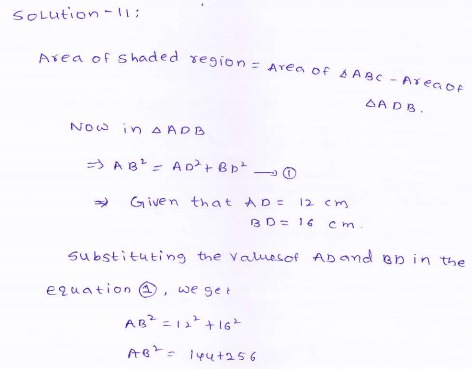 Solution-11:
Area of shaded region = Area of ΔABC - Area of
ΔADB.
Now in ΔADB
⇒ AB² = AD² + BD² → ①
⇒ Given that AD = 12 cm
BD = 16 cm.
Substituting the values of AD and BD in the
equation ①, we get
AB² = 12² + 16²
AB² = 144+256